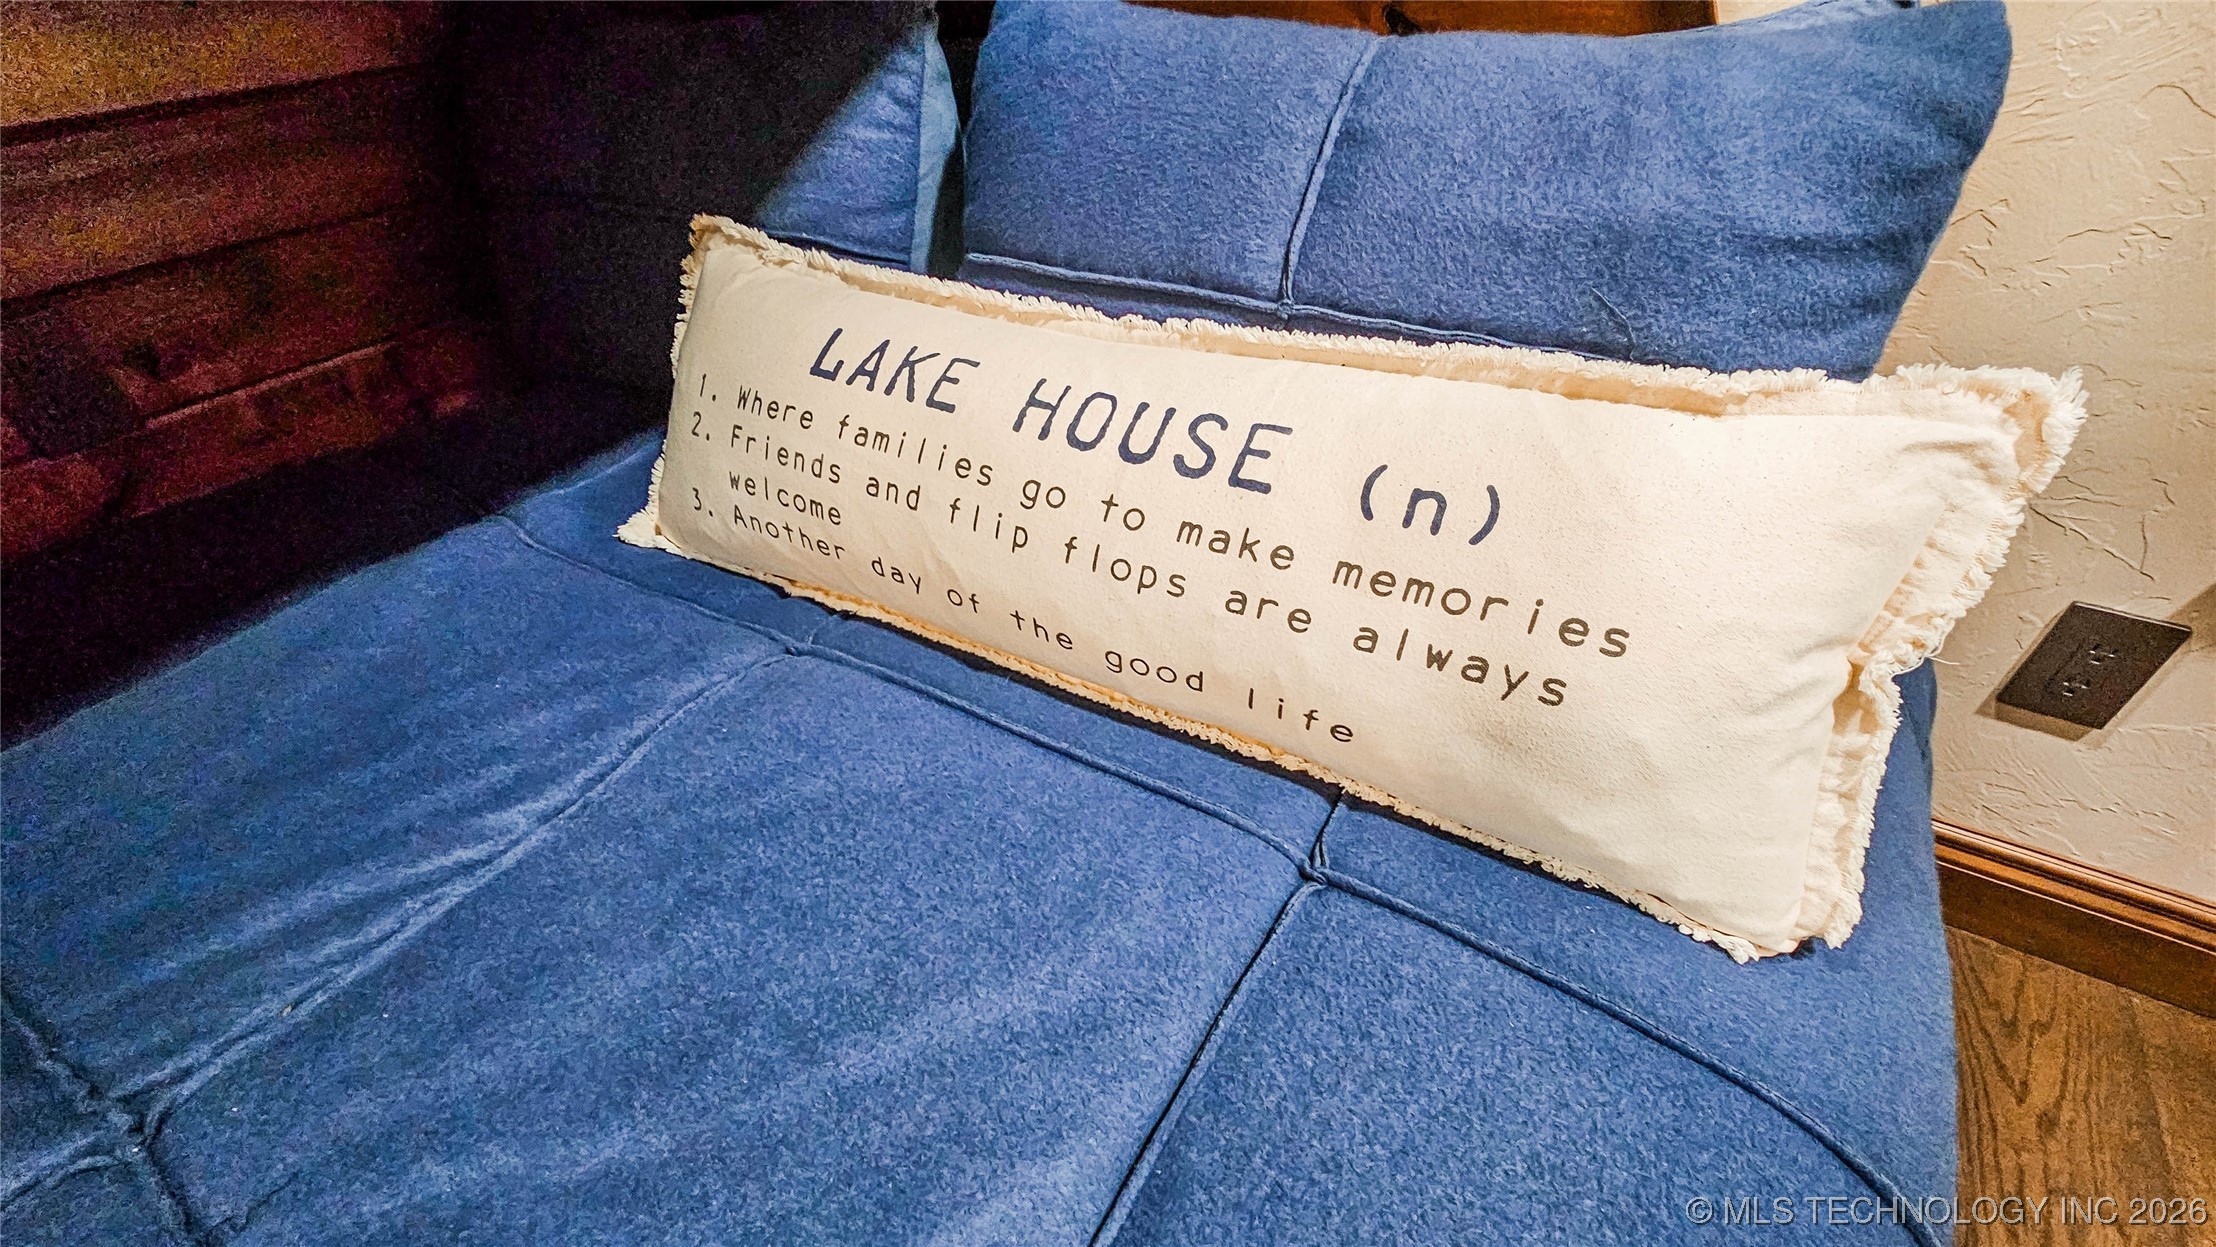 LAKE HOUSE (n)
1. Where families go to make memories
2. Friends and flip flops are always
welcome
3. Another day of the good life
© MLS TECHNOLOGY INC 2026